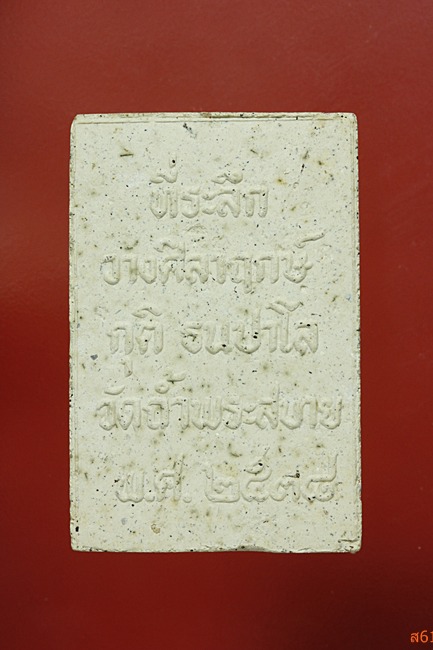 ที่ระลึก
วางศิลาฤกษ์
กุติ ธนปาโล
วัดถ้ำพระสบาย
พ.ศ. ๒๕๓๘
ส61